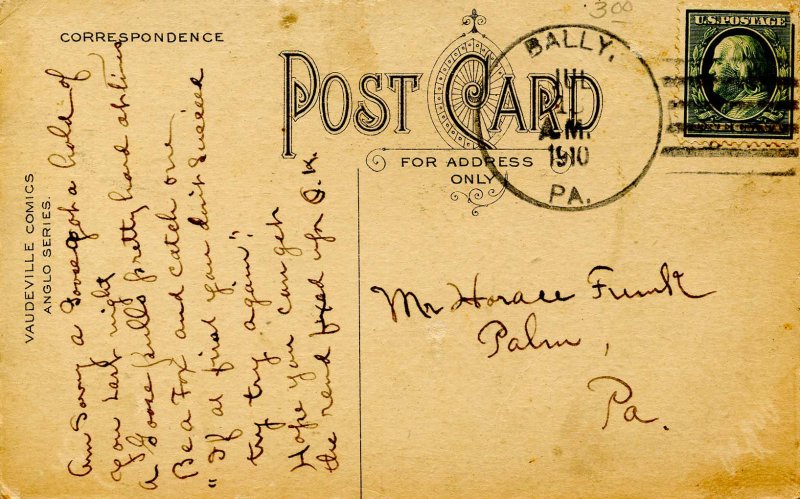 CORRESPONDENCE
POST CARD
FOR ADDRESS
ONLY
VAUDEVILLE COMICS
ANGLO SERIES.
BALLY,
JUL
A.M.
1910
PA.
U.S. POSTAGE
ONE CENT
3.00
Am Sorry a Goose got a hold of
you last night
A Goose pulls pretty hard at times
Be a Fox and catch one
"If at first you don't succeed
try try again".
Hope you can get
the rend fixed up O.K.
Mr Horace Funk
Palm,
Pa.